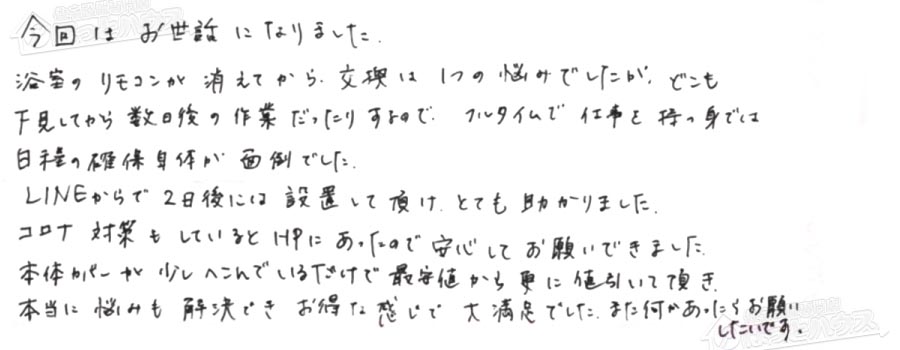 今回は お世話になりました.
浴室のリモコンが 消えてから、交換は 1つの悩みでしたが、どこも
下見してから数日後の作業だったりするので、フルタイムで仕事を持つ身では
日程の確保自体が 面倒でした.
LINEからで 2日後には 設置して頂け、とても助かりました.
コロナ 対策もしているとHPにあったので安心してお願いできました.
本体カバーが 少しへこんでいるだけで 最安値から 更に値引いて頂き、
本当に悩みも 解決でき お得な感じで 大満足でした. また何かあったらお願い
したいです.